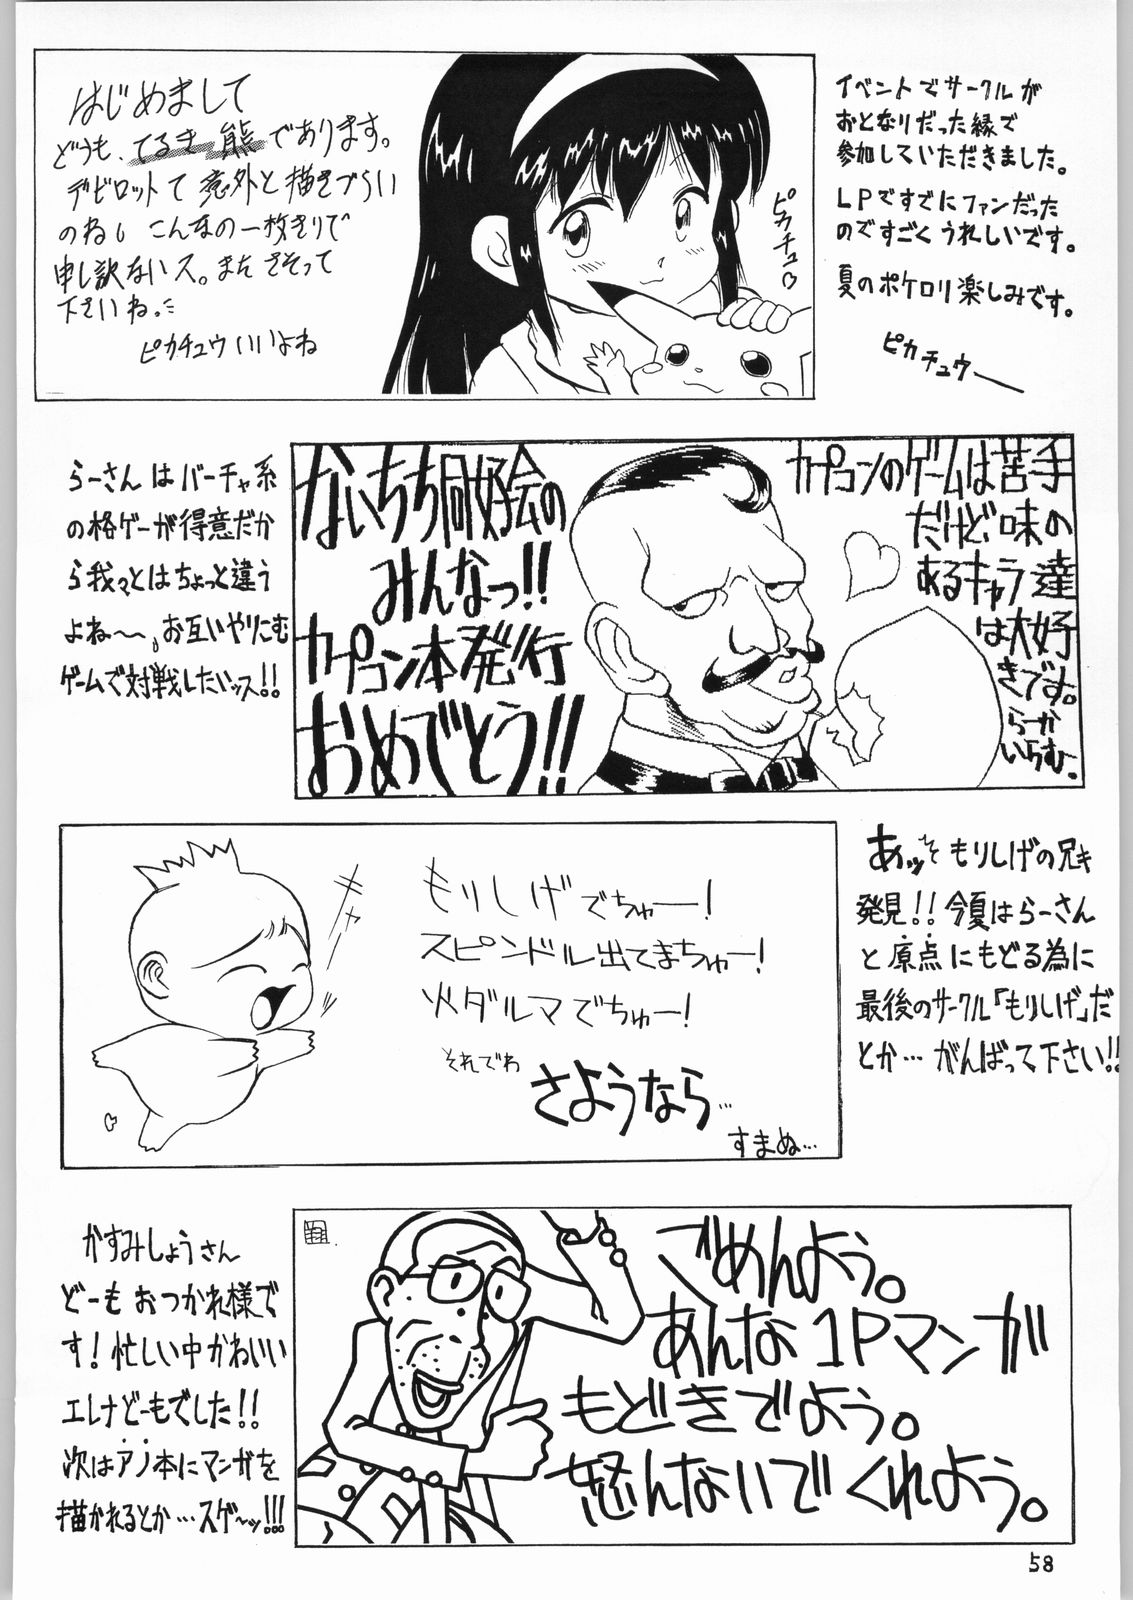 はじめまして
どうも、てるき熊であります。
デビロットて意外と描きづらい
のね。こんなの一枚きりで
申し訳ないス。またさそって
下さいね。
ピカチュウいいよね
ピカチュウ
イベントでサークルが
おとなりだった縁で
参加していただきました。
LPですでにファンだった
のですごくうれしいです。
夏のポケロリ楽しみです。
ピカチュウ―
らーさんはバーチャ系
の格ゲーが得意だか
ら我々とはちょっと違う
よね〜。お互いやりこむ
ゲームで対戦したいッス!!
ないちち同好会の
みんなっ!!
カプコン本発行
おめでとう!!
カプコンのゲームは苦手
だけど、味の
あるキャラ達
は大好
きです。
らーか
いらむ。
キャー
もりしげでちゅー!
スピンドル出てまちゅー!
火ダルマでちゅー!
それでわ
さようなら…
すまぬ…
あッそもりしげの兄き
発見!!今夏はらーさん
と原点にもどる為に
最後のサークル「もりしげ」だ
とか…がんばって下さい!!
かすみしょうさん
どーもおつかれ様で
す!忙しい中かわいい
エレナどーもでした!!
次はアノ本にマンガを
描かれるとか…スゲ〜ッ!!!
ごめんよう。
あんな1Pマンガ
もどきでよう。
怒んないでくれよう。
58